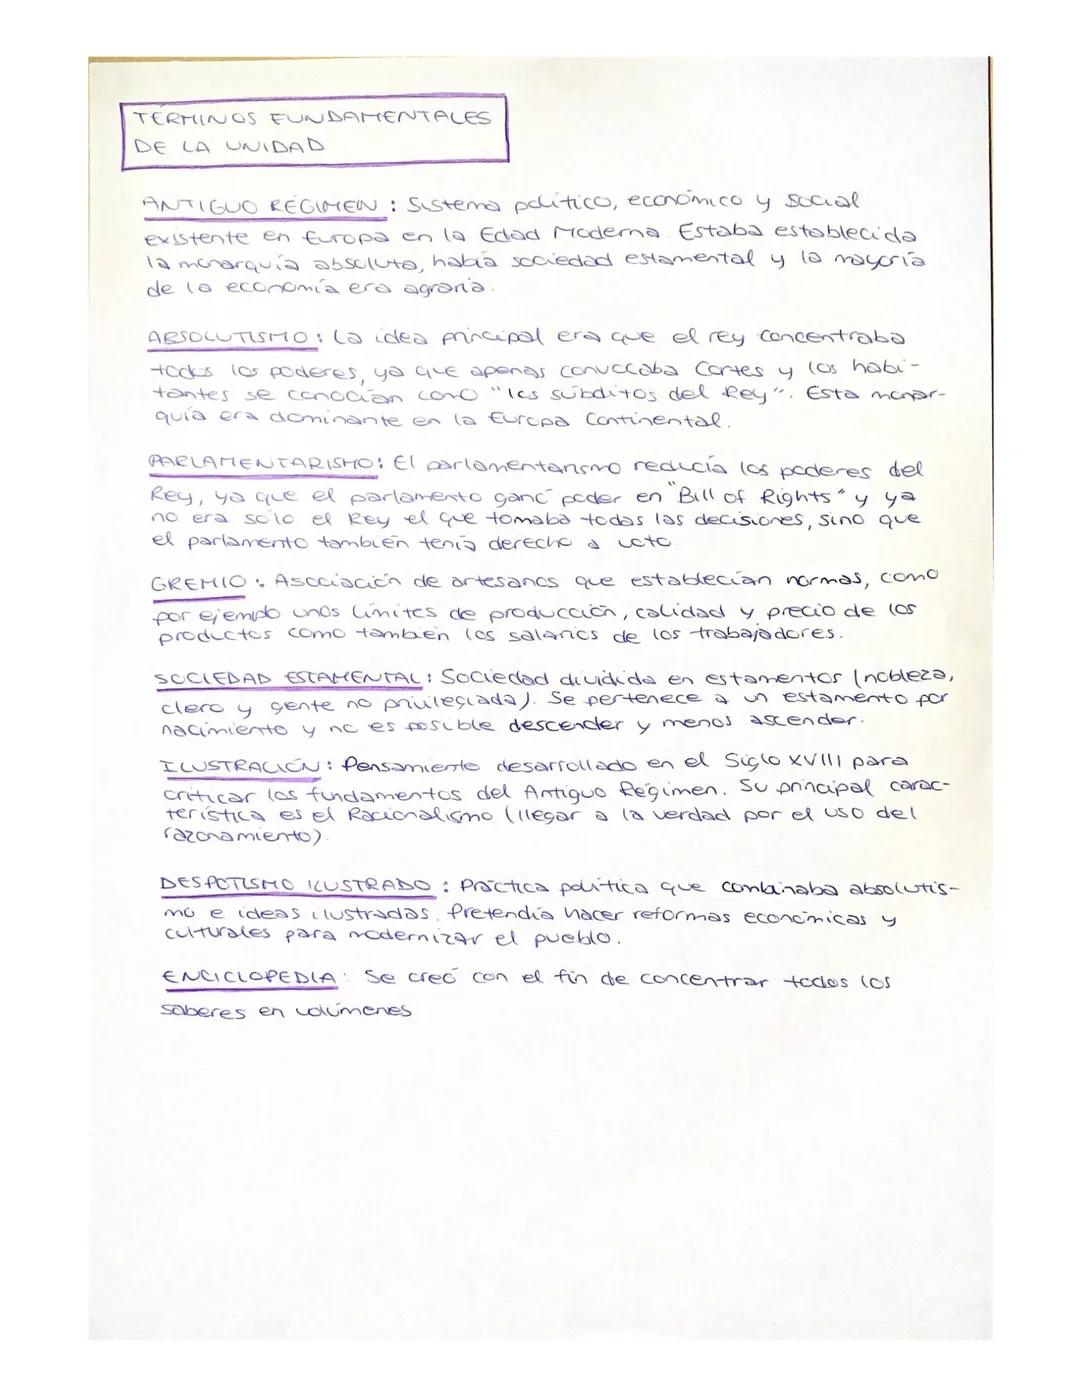 TÉRMINOS FUNDAMENTALES
DE LA UNIDAD
ANTIGUO RÉGIMEN : Sistema político, económico y social
existente en Europa en la Edad Moderna. Estaba establecida
la monarquía absoluta, había sociedad estamental y la mayoría
de la economía era agraria.
ABSOLUTISMO : La idea principal era que el rey concentraba
todos los poderes, ya que apenas convocaba Cortes y los habi-
tantes se conocían como "los súbditos del Rey". Esta monar-
quía era dominante en la Europa Continental.
PARLAMENTARISMO: El parlamentarismo reducía los poderes del
Rey, ya que el parlamento ganó poder en "Bill of Rights" y ya
no era solo el Rey el que tomaba todas las decisiones, sino que
el parlamento también tenía derecho a voto.
GREMIO : Asociación de artesanos que establecían normas, como
por ejemplo unos límites de producción, calidad y precio de los
productos como también los salarios de los trabajadores.
SOCIEDAD ESTAMENTAL : Sociedad dividida en estamentos (nobleza,
clero y gente no privilegiada). Se pertenece a un estamento por
nacimiento y no es posible descender y menos ascender.
ILUSTRACIÓN : Pensamiento desarrollado en el Siglo XVIII para
criticar los fundamentos del Antiguo Régimen. Su principal carac-
terística es el Racionalismo (llegar a la verdad por el uso del
razonamiento).
DESPOTISMO ILUSTRADO : Práctica política que combinaba absolutis-
mo e ideas ilustradas. Pretendía hacer reformas económicas y
culturales para modernizar el pueblo.
ENCICLOPEDIA : Se creó con el fin de concentrar todos los
saberes en volúmenes